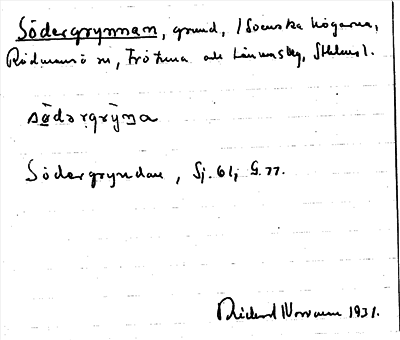 Södergrynnan, grund, i Svenska högarna,
Rådmansö sn, Frötuna och Länna skg, Sthlms l.
södərgrỳna
Södergryndan, Sj. 61, G. 77.
Richard Norrman 1931.